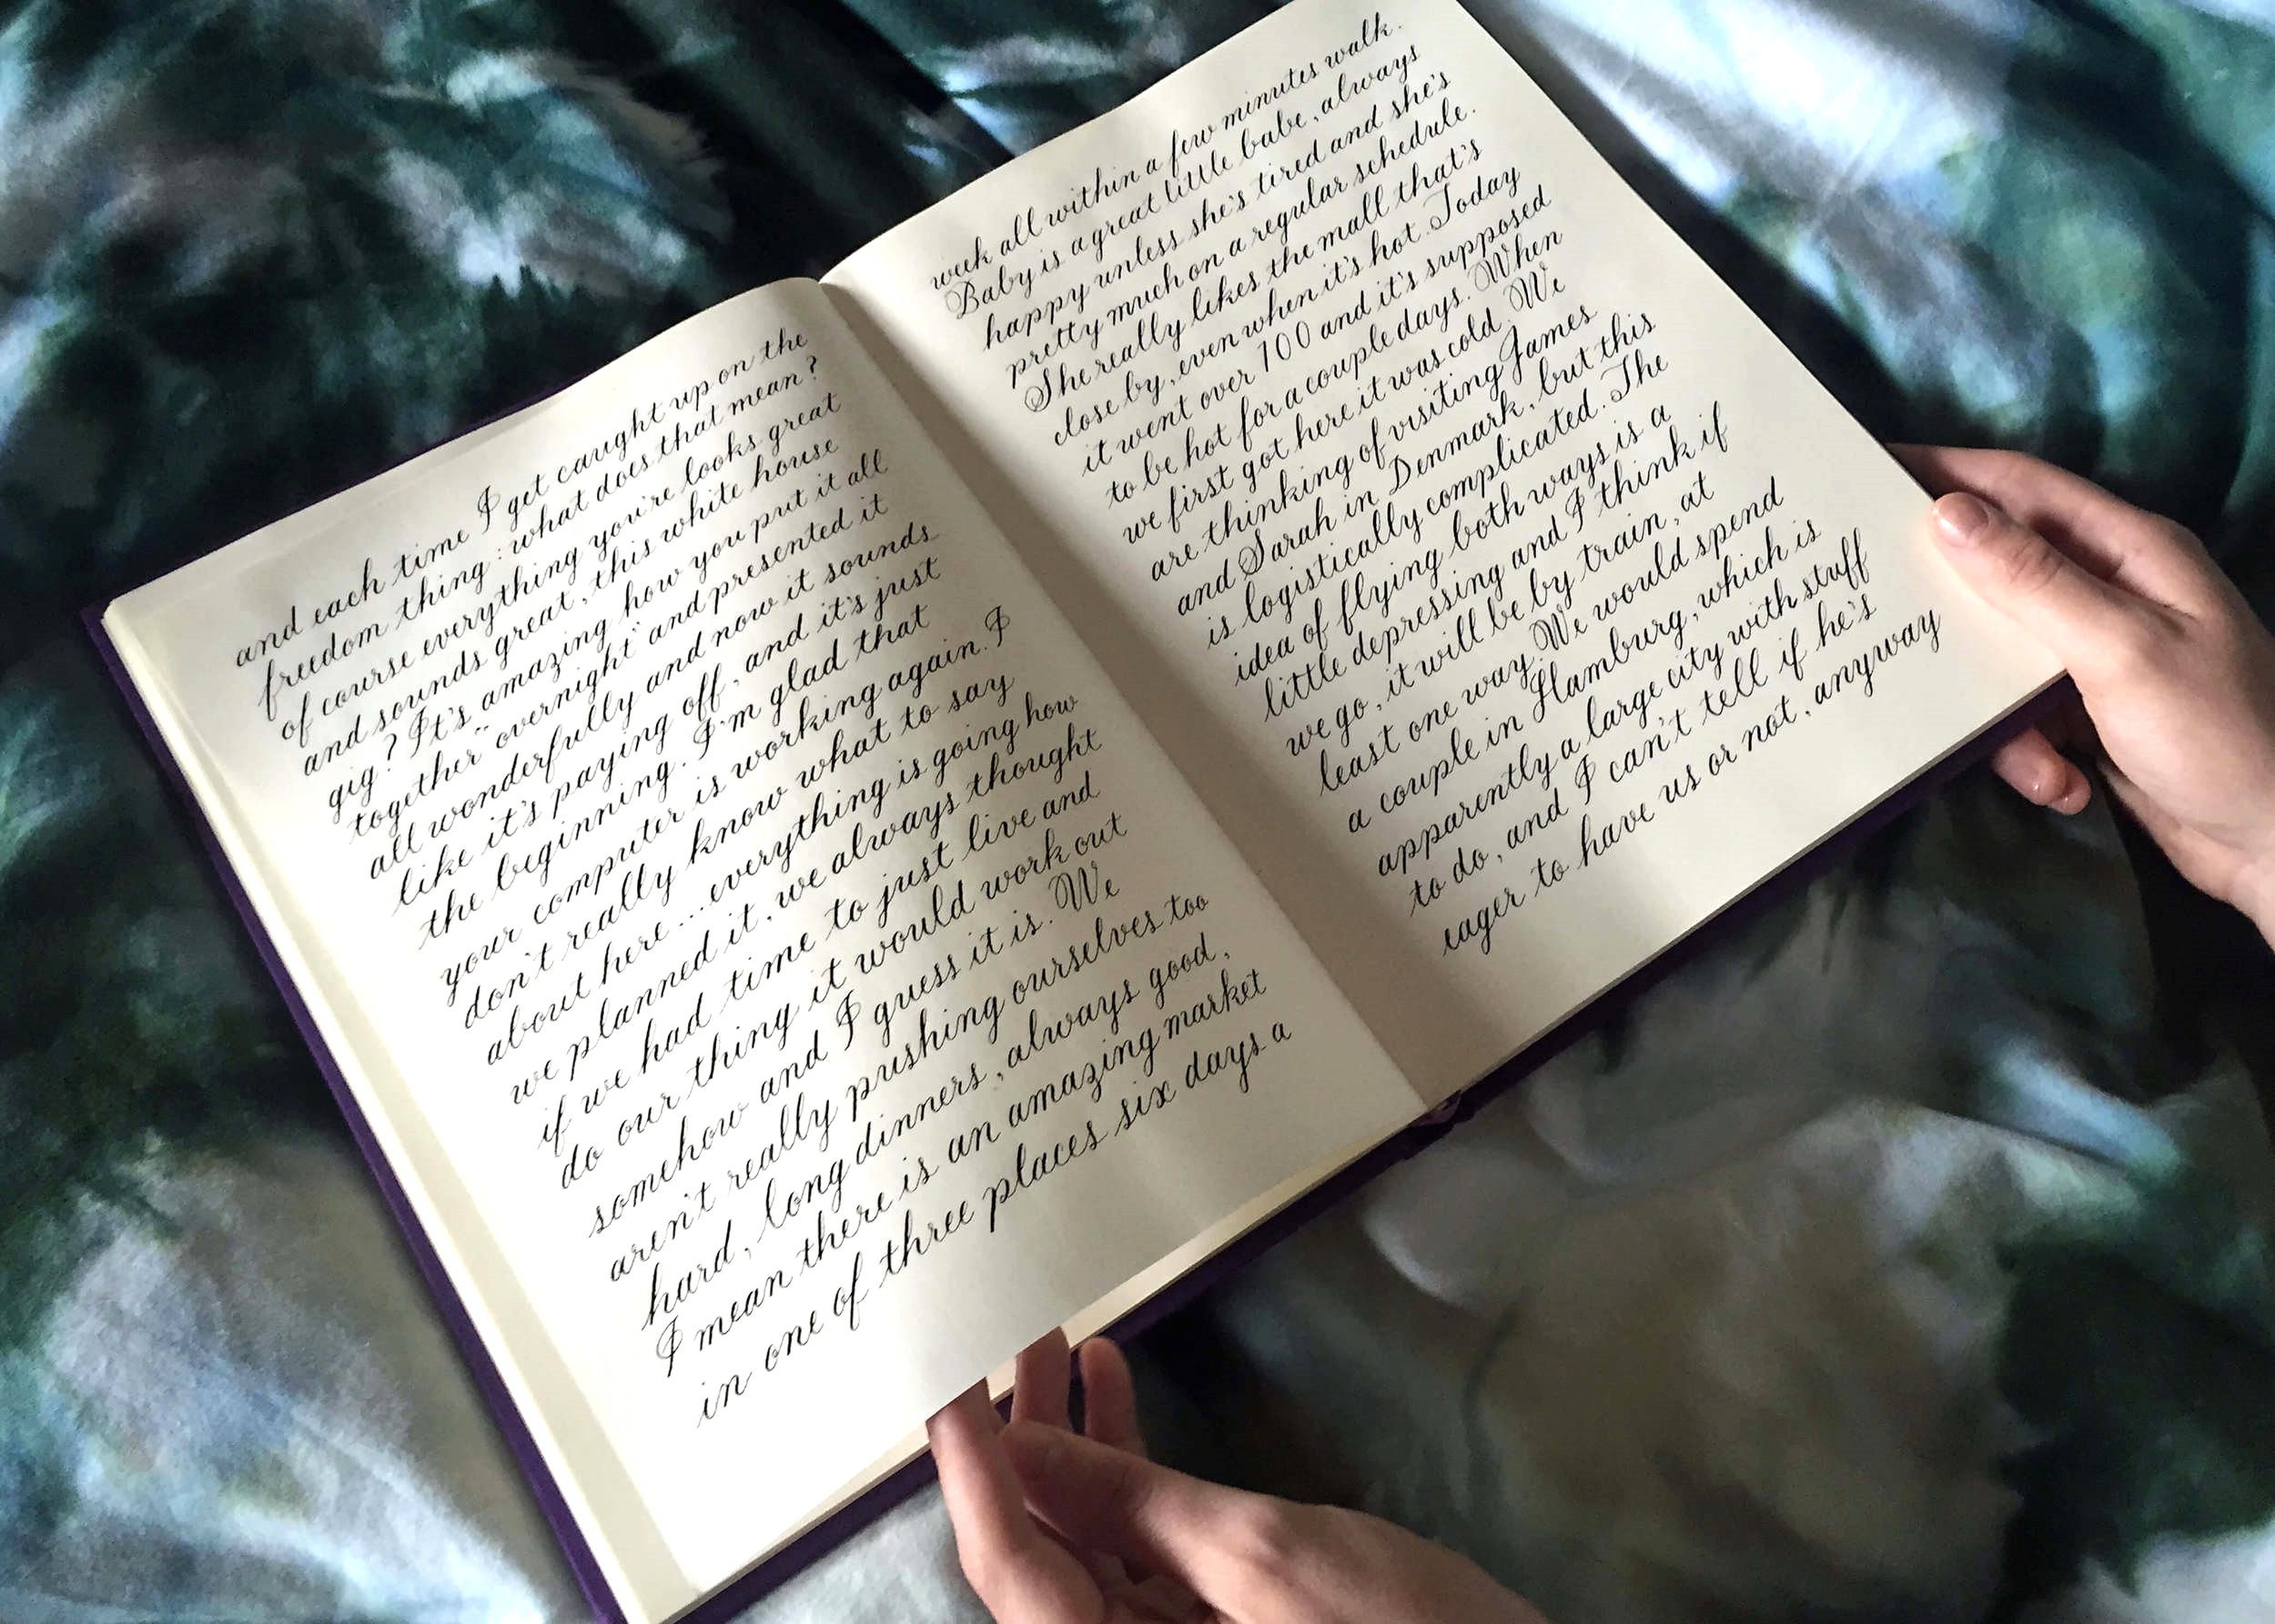 and each time I get caught up on the
freedom thing: what does that mean?
of course everything you're looks great
and sounds great, this white house
gig? It's amazing how you put it all
together "overnight" and presented it
all wonderfully and now it sounds
like it's paying off, and it's just
the beginning. I'm glad that
your computer is working again. I
don't really know what to say
about here...everything is going how
we planned it, we always thought
if we had time to just live and
do our thing it would work out
somehow and I guess it is. We
aren't really pushing ourselves too
hard, long dinners, always good,
I mean there is an amazing market
in one of three places six days a
week all within a few minutes walk.
Baby is a great little babe, always
happy unless she's tired and she's
pretty much on a regular schedule.
She really likes the mall that's
close by, even when it's hot. Today
it went over 100 and it's supposed
to be hot for a couple days. When
we first got here it was cold. We
are thinking of visiting James
and Sarah in Denmark, but this
is logistically complicated. The
idea of flying both ways is a
little depressing and I think if
we go, it will be by train, at
least one way. We would spend
a couple in Hamburg, which is
apparently a large city with stuff
to do, and I can't tell if he's
eager to have us or not, anyway